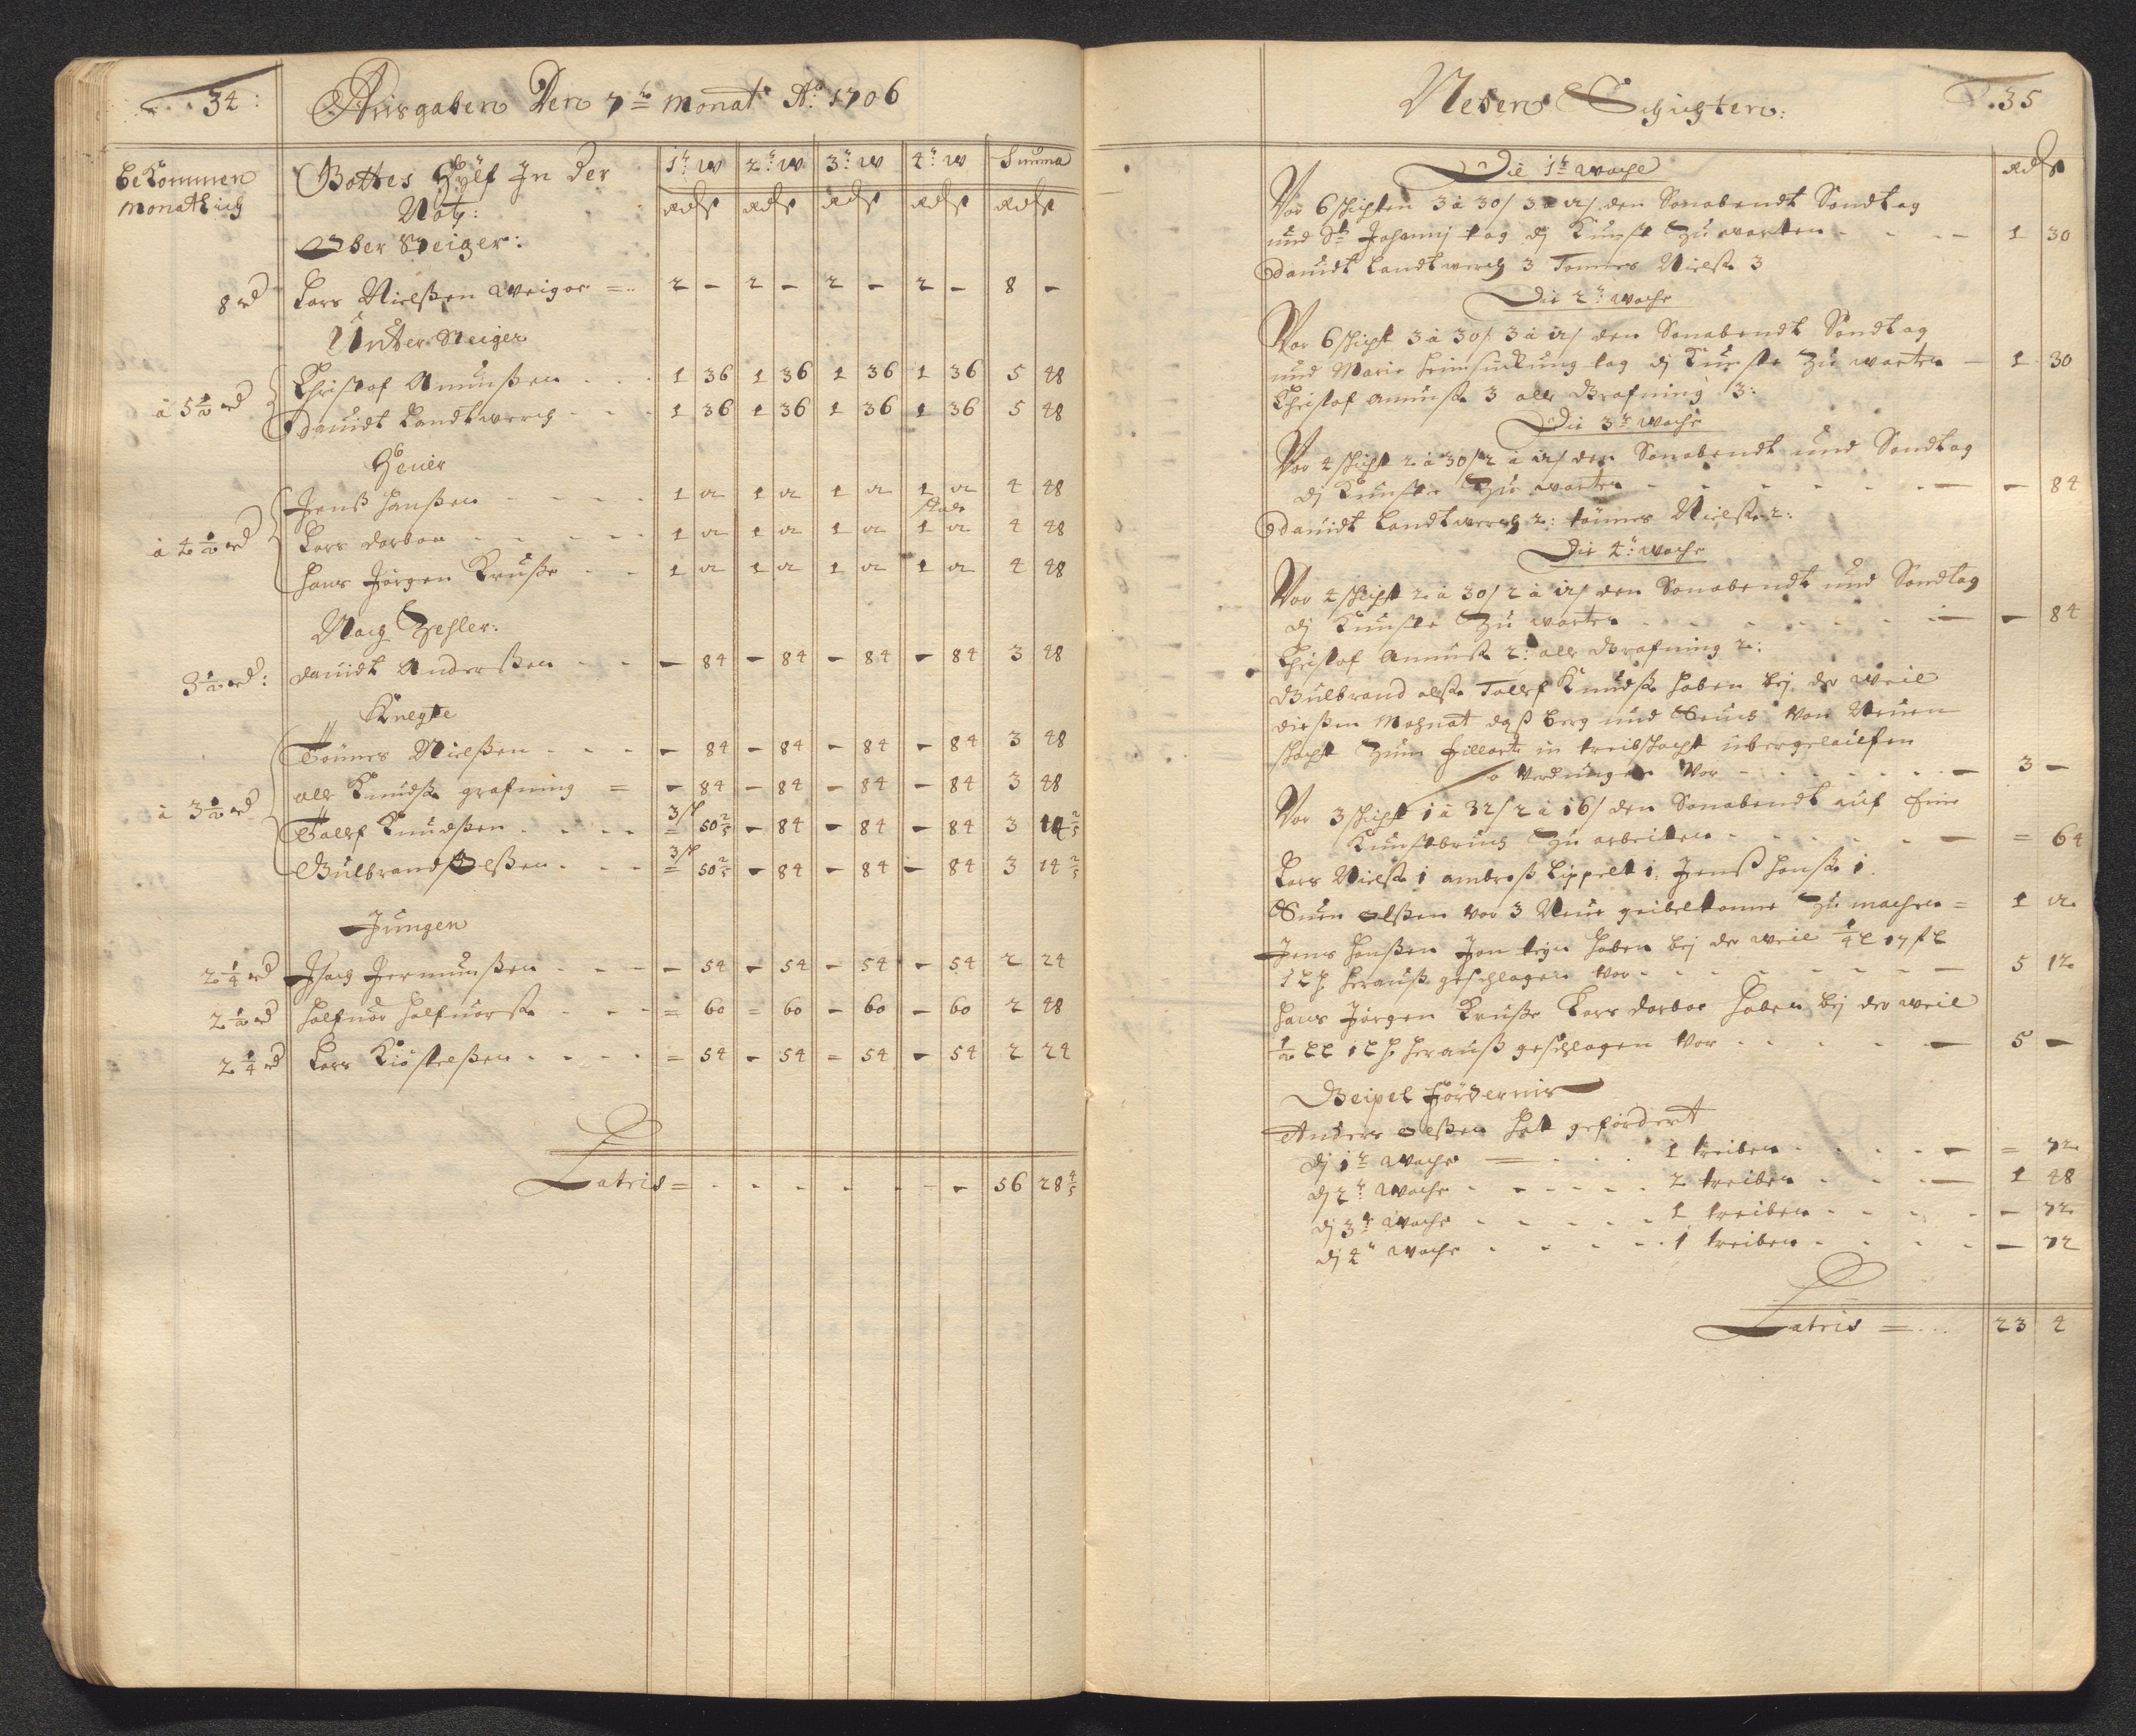 34:
Ausgaben Den 7te Monat Ao: 1706
bekommen
Monatlich
Gottes Hülf In der
Noth:
1te W 2te W 3te W 4te W Summa
Rd ß Rd ß Rd ß Rd ß Rd ß
Ober Steiger:
8 rd Lars Nielßen Weigor 2 - 2 - 2 - 2 - 8 -
Unter Steiger
à 5 1/2 rd Christof Amunßen 1 36 1 36 1 36 1 36 5 48
Dauidt Landtwerch 1 36 1 36 1 36 1 36 5 48
Heuer
à 4 1/2 rd Jenß Hanßen 1 12 1 12 1 12 1 12 4 48
Lars dorboe 1 12 1 12 1 12 1 12 4 48
Hans Jörgen Kruße 1 12 1 12 1 12 1 12 4 48
Nach Zehler:
3 1/2 rd: dauidt Anderßen - 84 - 84 - 84 - 84 3 48
Knechte
à 3 1/2 rd Tönnes Nielßen - 84 - 84 - 84 - 84 3 48
ole Knudß. grafning = - 84 - 84 - 84 - 84 3 48
Tollef Knudßen 3 sch 50 2/5 - 84 - 84 - 84 3 14 2/5
Gulbrandt Olßen 3 sch 50 2/5 - 84 - 84 - 84 3 14 2/5
Jungen
2 1/4 rd Isach Jermunßen - 54 - 54 - 54 - 54 2 24
2 1/2 rd Halfuor Halfuorß. = 60 = 60 - 60 - 60 2 48
2 1/4 rd Lars Kiöstelßen = 54 - 54 = 54 - 54 2 24
Latris = 56 28 4/5
Neben Schichten:
35
Rd ß
Die 1te Woche
Vor 6 schichten 3 à 30/ 3 à 12/ den Sonabendt Sondtag
und St: Johannij tag dj Kunst zu warten 1 30
Dauidt Landtwerch 3 Tönnes Nielß. 3
Die 2te Woche
Vor 6 schicht 3 à 30/ 3 à 12/ den Sonabendt Sondtag
und Marie heimsuckung tag dj Kunste zu warten 1 30
Christof Amunß. 3 ole Grafning 3:
Die 3te Woche
Vor 4 schicht 2 à 30/ 2 à 12/ den Sonabendt und Sondtag
dj Kunste zu warten - 84
Dauidt Landtwerch 2: tönnes Nielß. 2:
Die 4te Woche
Vor 4 schicht 2 à 30/ 2 à 12/ den Sonabendt und Sondtag
dj Kunste zu warten - 84
Christof Amunß. 2: ole Grafning 2:
Gulbrand olß. Tollef Knudß. haben bej der weil
dießen Mohnat daß berg und Von Neuen
schacht zum füllort in treibschacht übergelaufen
Verdungen Vor 3 -
Vor 3 schicht 1 à 32/ 2 à 16/ den Sonabendt auf Eine
Kunstbruch zu arbeiten = 64
Lars Nielß. 1 ambroß Lippelt 1. Jenß Hanß. 1.
Suen olßen Vor 3 Neue zu machen = 1 12
Jenß Hanßen Jon haben bej der weil 1/4
herauß geschlagen Vor 5 12
Hans Jörgen Kruße Lars dorboe haben bej der weil
herauß geschlagen Vor 5 -
Geipel Fördernis
Anders olßen hat gefördert
dj 1te Woche 1 treiben = 72
dj 2te Woche 2 treiben 1 48
dj 3te Woche 1 treiben - 72
dj 4te Woche 1 treiben - 72
Latris = 23 4